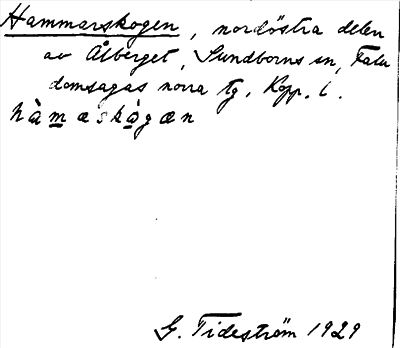 Hammarskogen, nordöstra delen
av Ålberget, Sundborns sn, Falu
domsagas norra tg, Kopp. l.
hàmæskògæn
G. Tideström 1929